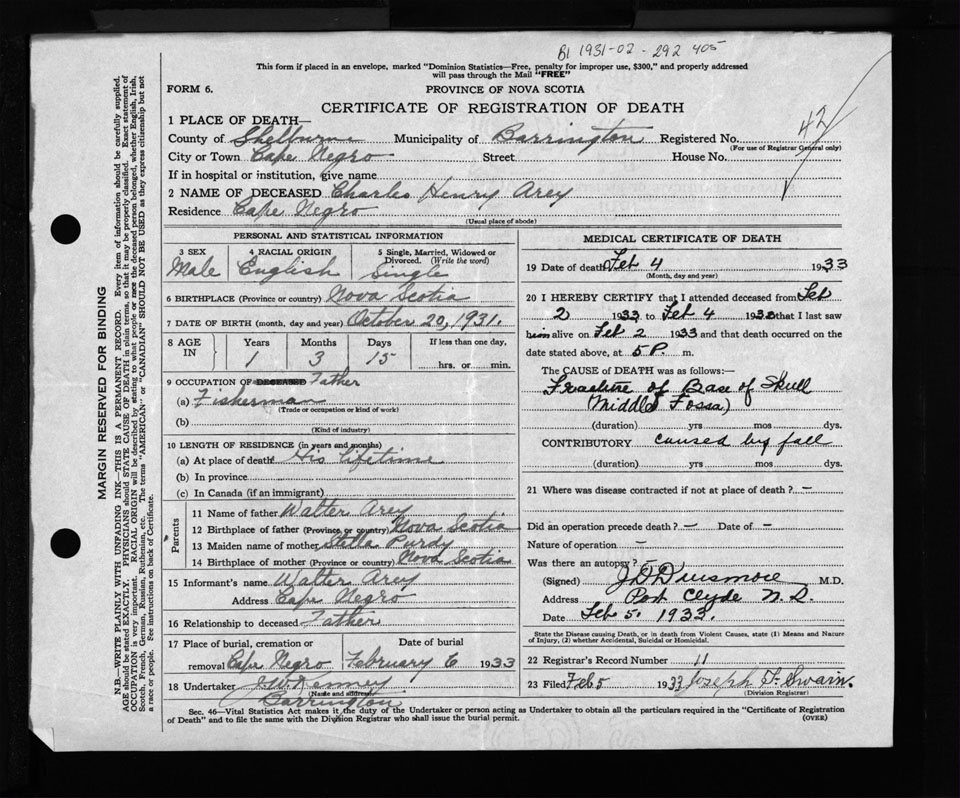 B1 1931-02-292 405
This form if placed in an envelope, marked "Dominion Statistics—Free, penalty for improper use, $300," and properly addressed
will pass through the Mail "FREE"
FORM 6.
PROVINCE OF NOVA SCOTIA
CERTIFICATE OF REGISTRATION OF DEATH
42
1 PLACE OF DEATH—
County of Shelburne Municipality of Barrington Registered No.
(For use of Registrar General only)
City or Town Cape Negro Street House No.
If in hospital or institution, give name
2 NAME OF DECEASED Charles Henry Arey
Residence Cape Negro
(Usual place of abode)
PERSONAL AND STATISTICAL INFORMATION
3 SEX 4 RACIAL ORIGIN 5 Single, Married, Widowed or Divorced. (Write the word)
Male English Single
6 BIRTHPLACE (Province or country) Nova Scotia
7 DATE OF BIRTH (month, day and year) October 20, 1931.
8 AGE IN Years Months Days If less than one day,
1 3 15 hrs. or min.
9 OCCUPATION OF DECEASED Father
(a) Fisherman
(Trade or occupation or kind of work)
(b)
(Kind of industry)
10 LENGTH OF RESIDENCE (in years and months)
(a) At place of death His lifetime
(b) In province
(c) In Canada (if an immigrant)
Parents
11 Name of father Walter Arey
12 Birthplace of father (Province or country) Nova Scotia
13 Maiden name of mother Stella Purdy
14 Birthplace of mother (Province or country) Nova Scotia
15 Informant's name Walter Arey
Address Cape Negro
16 Relationship to deceased Father
17 Place of burial, cremation or Date of burial
removal Cape Negro February 6 1933
18 Undertaker Kenney
(Name and address)
Barrington
MEDICAL CERTIFICATE OF DEATH
19 Date of death Feb 4 1933
(Month, day and year)
20 I HEREBY CERTIFY that I attended deceased from Feb
2 1933 to Feb 4 1933 that I last saw
him alive on Feb 2 1933 and that death occurred on
date stated above, at 5 P. m.
The CAUSE OF DEATH was as follows:—
Fracture of Base of Skull
(Middle Fossa)
(duration) yrs mos dys.
CONTRIBUTORY caused by fall
(duration) yrs mos dys.
21 Where was disease contracted if not at place of death? —
Did an operation precede death? — Date of —
Nature of operation —
Was there an autopsy?
(Signed) Dinsmore M.D.
Address Port Clyde N.S.
Date Feb 5. 1933.
State the Disease causing Death, or in death from Violent Causes, state (1) Means and Nature
of Injury, (2) whether Accidental, Suicidal or Homicidal.
22 Registrar's Record Number 11
23 Filed Feb 5 1933 Joseph F. Swain.
(Division Registrar)
Sec. 46—Vital Statistics Act makes it the duty of the Undertaker or person acting as Undertaker to obtain all the particulars required in the "Certificate of Registration
of Death" and to file the same with the Division Registrar who shall issue the burial permit.
(OVER)
MARGIN RESERVED FOR BINDING
N.B.—WRITE PLAINLY WITH UNFADING INK—THIS IS A PERMANENT RECORD. Every item of information should be carefully supplied.
AGE should be stated EXACTLY. PHYSICIANS should STATE CAUSE OF DEATH in plain terms, so that it may be properly classified. Exact statement of
OCCUPATION is very important. RACIAL ORIGIN will be described by stating to what people or race the deceased person belonged, whether English, Irish,
Scotch, French, German, Russian, Ruthenian, etc. The terms "AMERICAN" or "CANADIAN" SHOULD NOT BE USED as they express citizenship but not
a race or people. See instructions on back of Certificate.